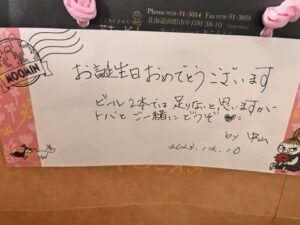 Phone 0138-51-3014 Fax 0138-51-3055
北海道函館市中島町38-1
MOOMIN
お誕生日おめでとうございます
ビール2本では足りないと思いますがー
トバとご一緒にどうぞ
by 中山
2023.12.10